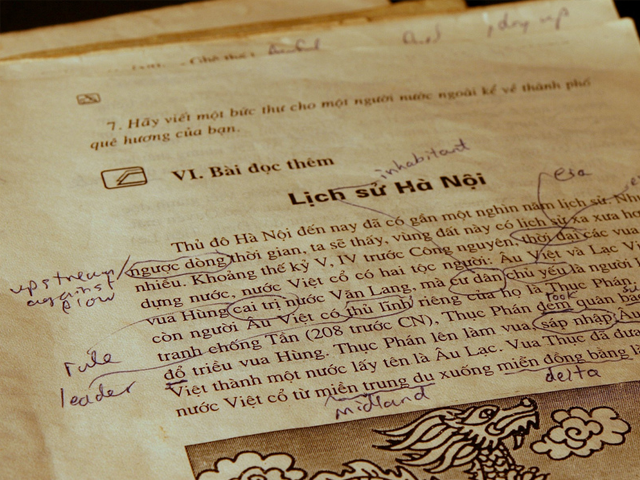 , dry up
7. Hãy viết một bức thư cho một người nước ngoài kể về thành phố
quê hương của bạn.
VI. Bài đọc thêm
inhabitant
Lịch sử Hà Nội
era
Thủ đô Hà Nội đến nay đã có gần một nghìn năm lịch sử.
ngược dòng thời gian, ta sẽ thấy, vùng đất này có lịch sử xa xưa
upstream
against
flow
nhiều. Khoảng thế kỷ V, IV trước Công nguyên, thời đại các vua
dựng nước, nước Việt cổ có hai tộc người: Âu Việt và Lạc
vua Hùng cai trị nước Văn Lang, mà cư dân chủ yếu là người
còn người Âu Việt có thủ lĩnh riêng của họ là Thục Phán.
took
rule
tranh chống Tần (208 trước CN), Thục Phán đem quân
leader
đổ triều vua Hùng. Thục Phán lên làm vua, sáp nhập Âu
Việt thành một nước lấy tên là Âu Lạc. Vua Thục đã
nước Việt cổ từ miền trung du xuống miền đồng bằng
midland
delta